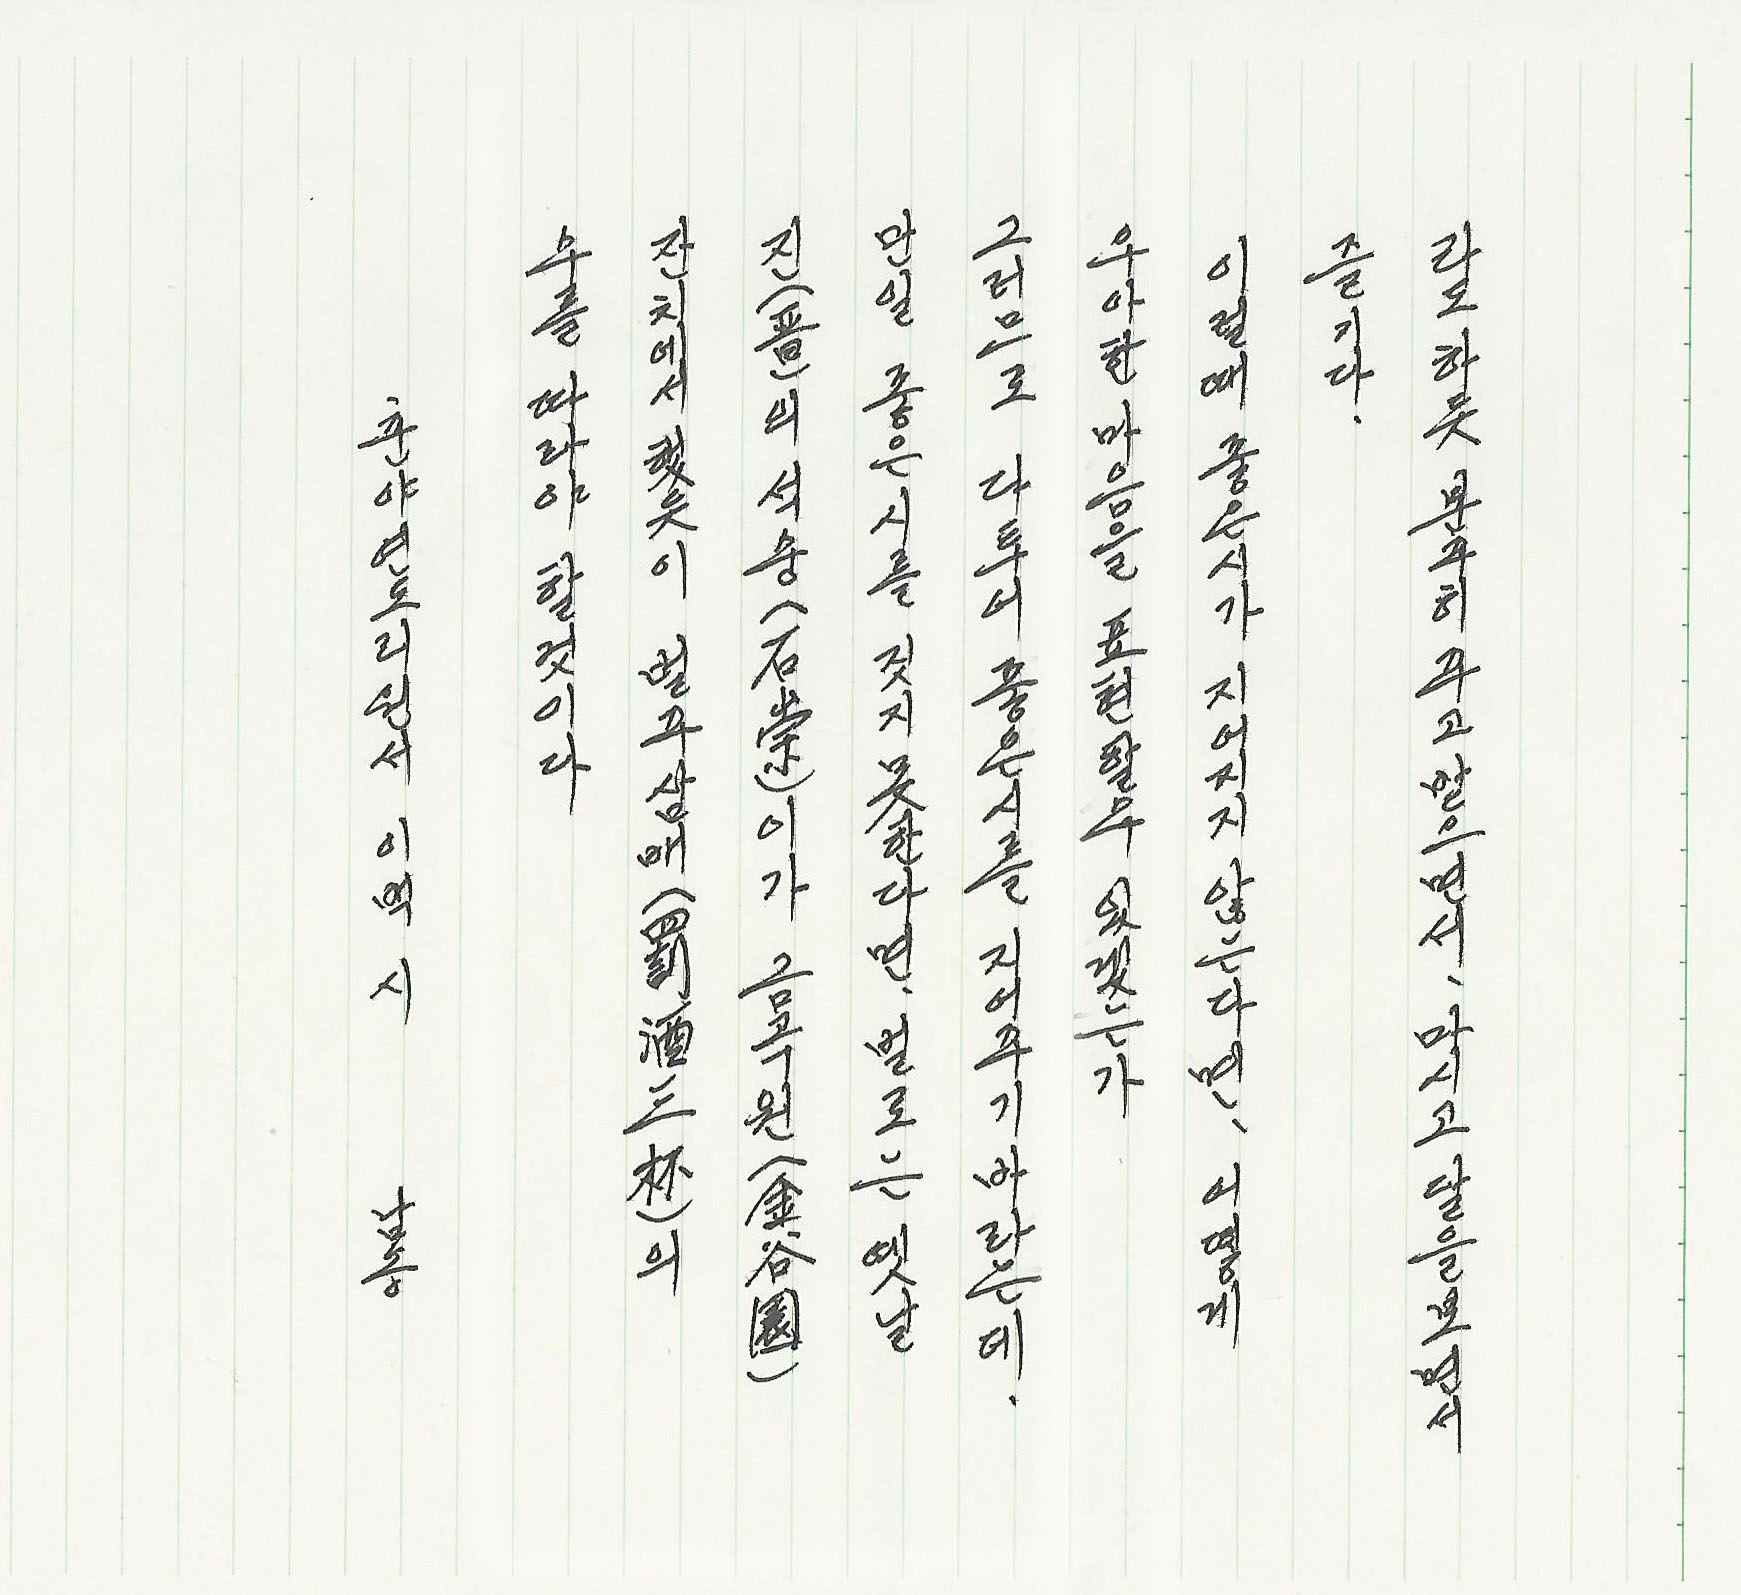 라도 하듯 분주히 주고 받으면서、 마시고 달을 보면서
즐기다.
이럴때 좋은시가 지어지지 않는다면、 어떻게
우아한 마음을 표현할수 있겠는가
그러므로 다투어 좋은시를 지어주기 바라는데.
만일 좋은시를 짓지못한다면、 벌로는 옛날
진(晋)의 석숭(石崇)이가 금곡원(金谷園)
잔치에서 했듯이 벌주삼배(罰酒三杯)의
수를 따라야 할것이다
춘야연도리원서 이백 시 남종